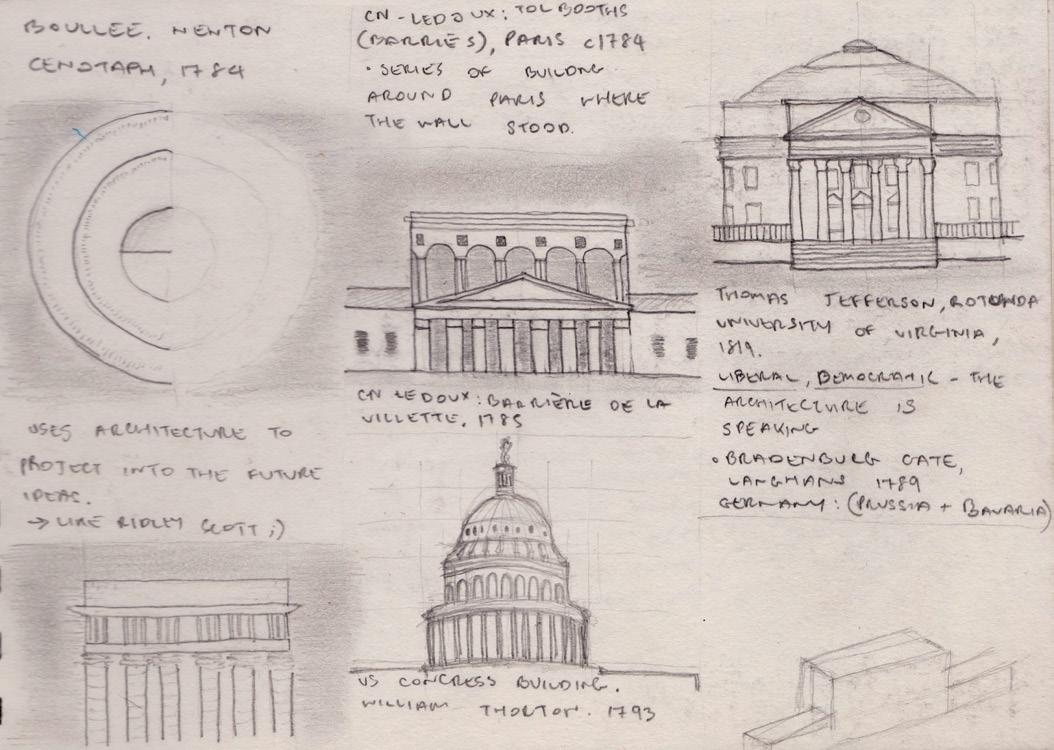 BOULLEE. NEWTON
CENOTAPH, 1784
USES ARCHITECTURE TO
PROJECT INTO THE FUTURE
IDEAS.
→ LIKE RIDLEY SCOTT ;)
CN-LEDOUX: TOLBOOTHS
(BARRIES), PARIS c1784
• SERIES OF BUILDNG
AROUND PARIS WHERE
THE WALL STOOD.
CN LEDOUX: BARRIÈRE DE LA
VILLETTE, 1785
US CONGRESS BUILDING.
WILLIAM THORTON. 1793
THOMAS JEFFERSON, ROTUNDA
UNIVERSITY OF VIRGINIA,
1819.
LIBERAL, DEMOCRATIC - THE
ARCHITECTURE IS
SPEAKING
• BRADENBURG GATE,
LANGHANS 1789
GERMANY: (PRUSSIA + BAVARIA)